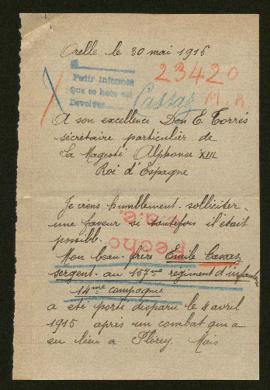 Orelle le 30 mai 1915
Pedir informes
que se hace est
Devolver
23420
Cavaz M. R
A son excellence Don E. Torrès
secrétaire particulier de
Sa Magesté Alphonse XIII
Roi d'Espagne
Je viens humblement solliciter
une faveur si toutefois il était
possible.
Hecho
Mon beau-frère Emile
sergent au 157me régiment d'infanterie
14me compagnie
a été porté disparu le 4 avril
1915 après un combat qui a
eu lieu à Flirey, Mais